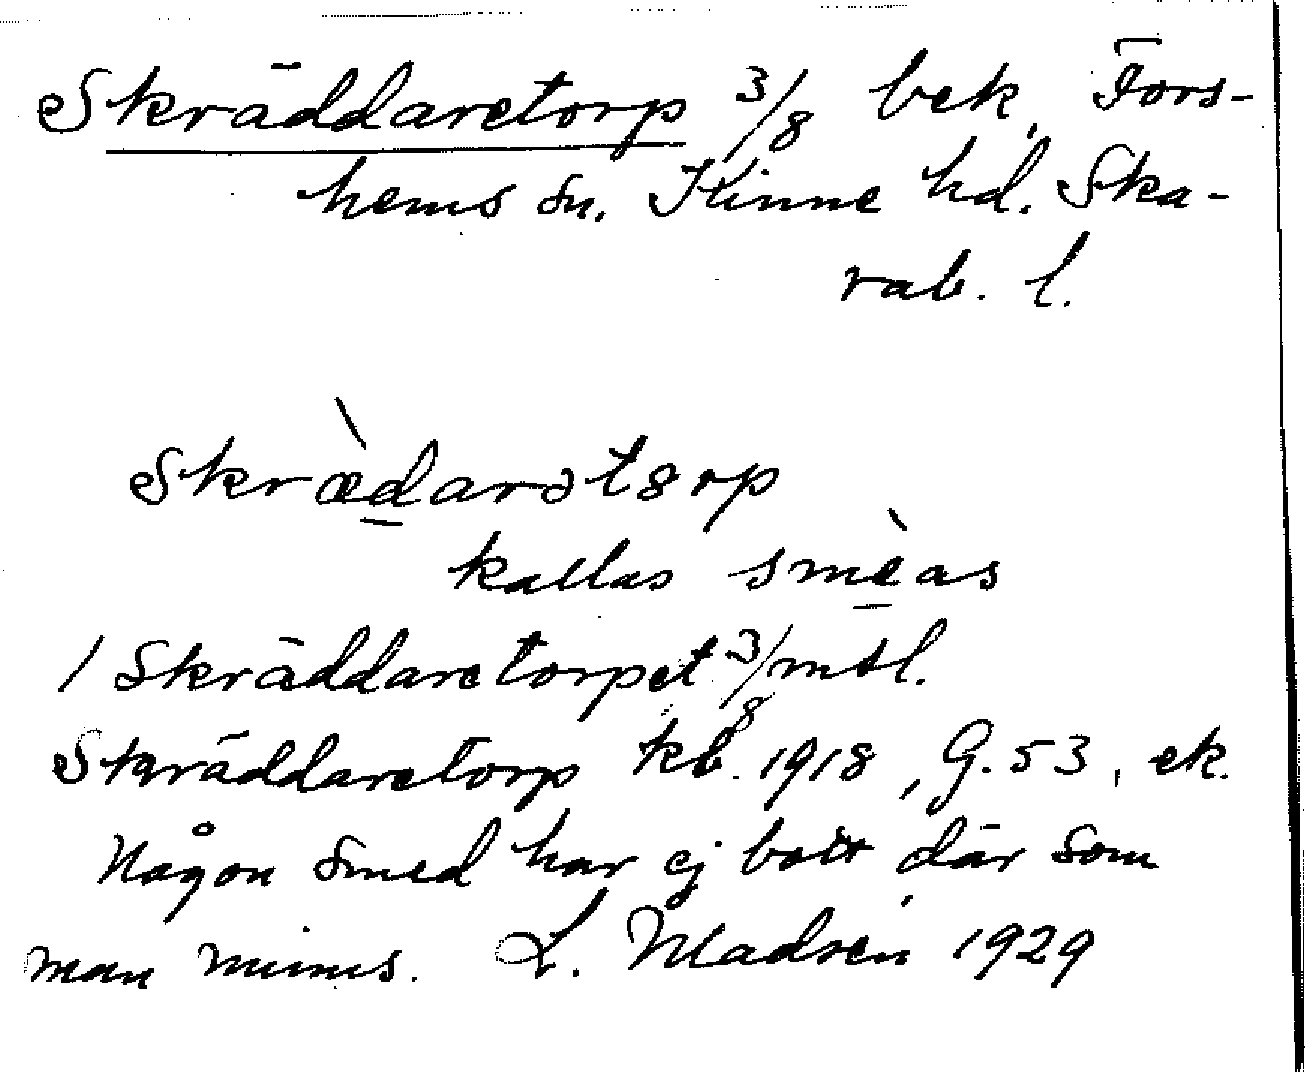 Skräddaretorp 3/8 bek, Fors-
hems sn. Kinne hd. Ska-
rab. l.
Skræ̀darətərp
kallas smèas
1 Skräddaretorpet 3/8 mtl.
Skräddaretorp kb. 1918, G. 53, ek.
Någon smed har ej bott där som
man minns. L. Madsén 1929